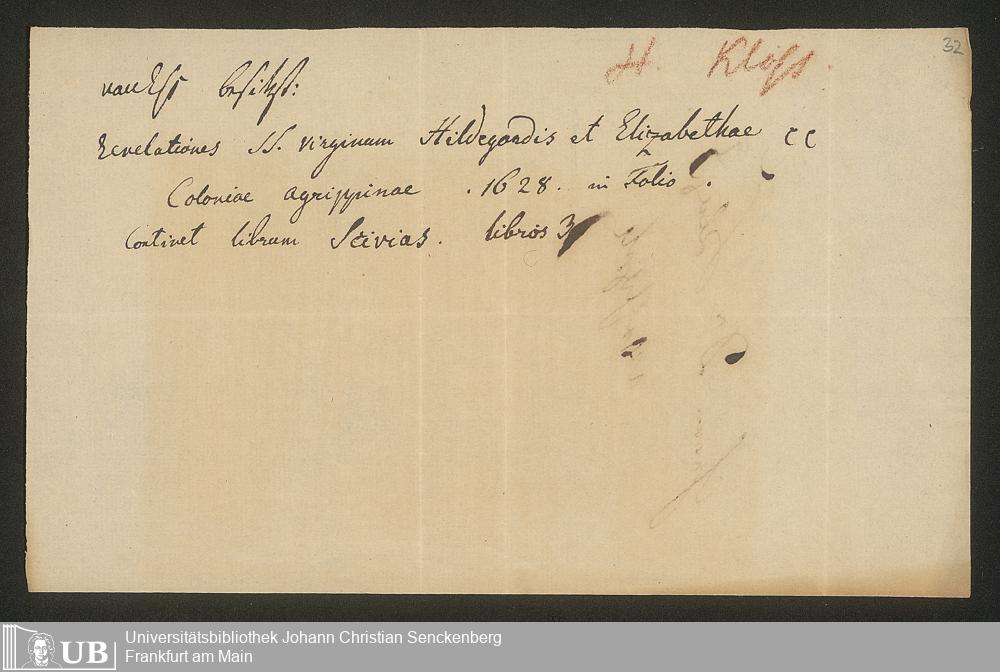 32
H. Kloß.
van Eß besitzt:
Revelationes SS. virginum Hildegardis et Elizabethae CC
Coloniae agrippinae . 1628 . in Folio .
Continet librum Scivias . libros 3
UB
Universitätsbibliothek Johann Christian Senckenberg
Frankfurt am Main